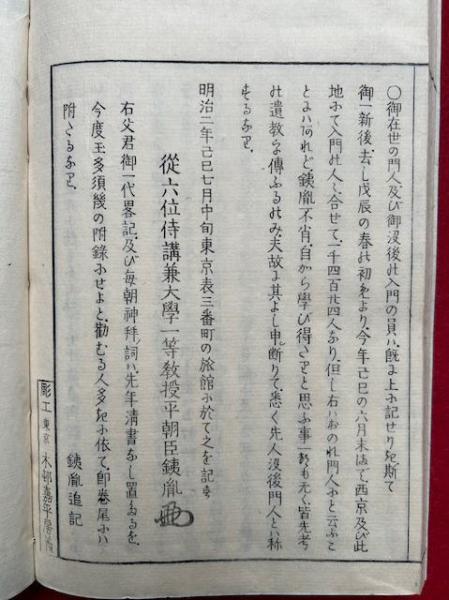 〇御在世の門人及び御沒後の入門の員ハ既に上に記せり尅斯て
御一新後去し戊辰の春の初めより、今年己巳の六月末迄で、西京及び此
地にて入門の人〻合せて、一千四百廿四人なり、但し右ハおのれ門人にと云ふこ
とにハあれど、銕胤不肖、自から學び得たりと思ふ事一ツも无く皆先考
の遺教を傳ふるのみ、夫故に其よし申し斷りて、悉く先人沒後門人とハ稱
するなり。
明治二年己巳七月中旬東京表三番町の旅館に於て之を記す
從六位侍講兼大學一等教授平朝臣銕胤
右父君御一代畧記及び毎朝神拜ノ詞ハ先年淸書なし置るを、
今度玉多須幾の附錄にせよと、勸むる人多きに依て、卽卷尾にハ
附たるなり。
銕胤追記
彫工 東京 木邨嘉平